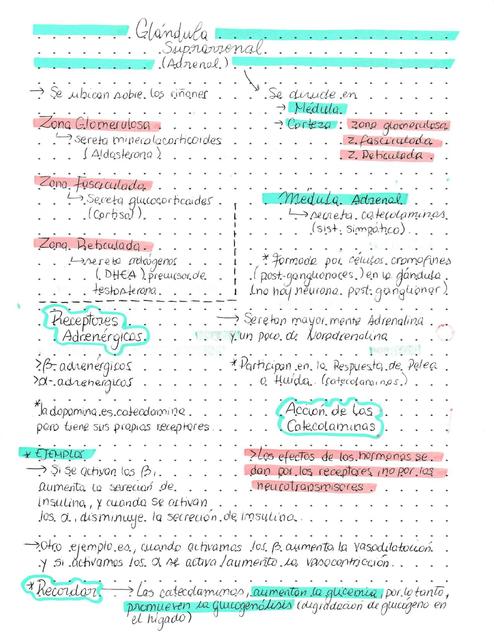 Glándula
Suprarrenal
(Adrenal)
→ Se ubican sobre los riñones
Zona Glomerulosa
↳ Secreta mineralocorticoides
(Aldosterona)
Zona Fasciculada
↳ Secreta glucocorticoides
(Cortisol)
Zona Reticulada
↳ secreta andrógenos
(DHEA) precursor de
testosterona
Se divide en
→ Médula
→ Corteza: zona glomerulosa
z. fasciculada
z. Reticulada
Médula Adrenal
↳ secreta catecolaminas
(sist. simpático)
* Formada por células cromafines
(post-ganglionares) en la glándula
(no hay neurona post-ganglionar)
→ Secretan mayormente Adrenalina
y un poco de Noradrenalina
* Participan en la Respuesta de Pelea
o Huida (catecolaminas)
Receptores
Adrenérgicos
> β-adrenérgicos
> α-adrenérgicos
*la dopamina es catecolamina
pero tiene sus propios receptores
Acción de las
Catecolaminas
> Los efectos de las hormonas se
dan por los receptores, no por los
neurotransmisores
* EJEMPLOS
→ Si se activan los β,
aumenta la secreción de
insulina, y cuando se activan
los α, disminuye la secreción de insulina
→ Otro ejemplo es, cuando activamos los β aumenta la vasodilatación
y si activamos los α se activa/aumenta la vasocontracción
* Recordar → Las catecolaminas, aumentan la glucemia por lo tanto,
promueven la glucogenólisis (degradación de glucógeno en
el hígado)